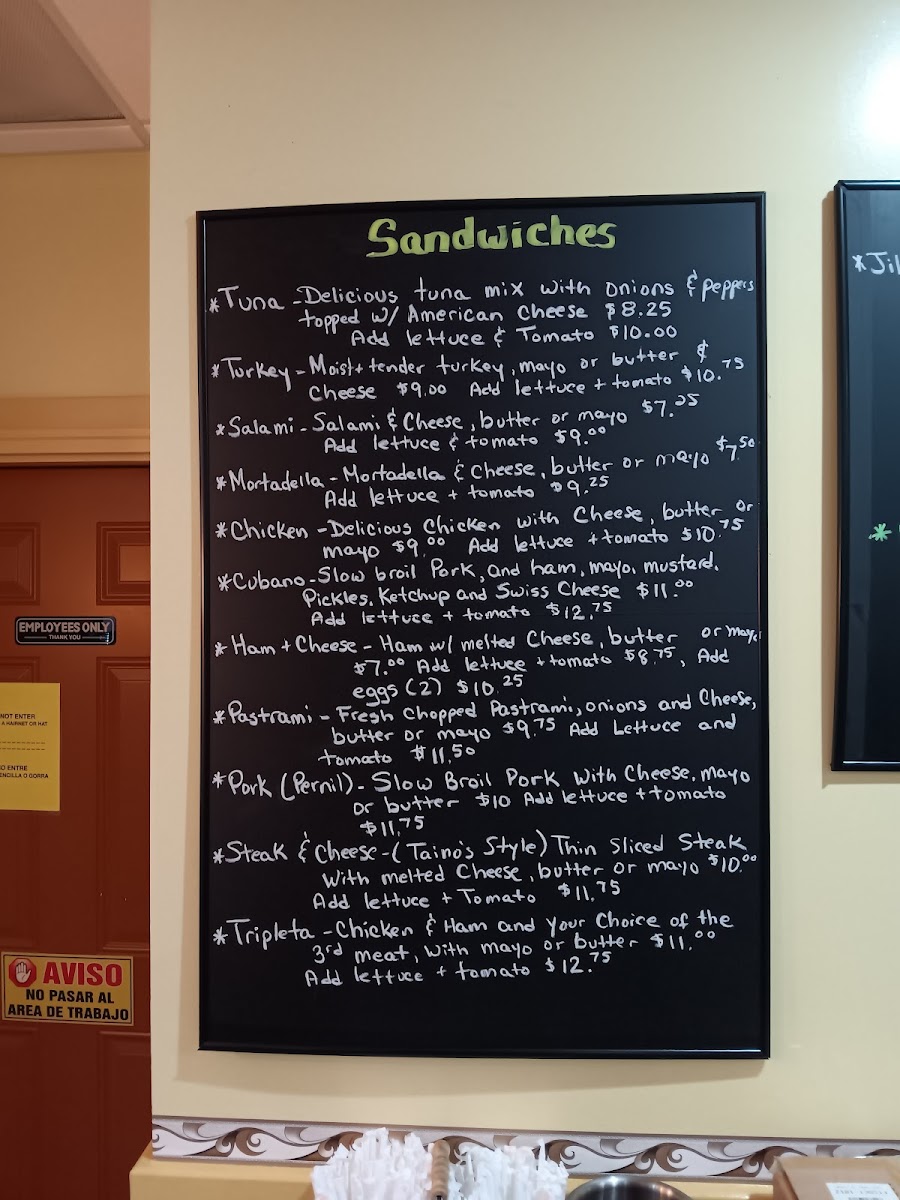 Sandwiches
*Tuna - Delicious tuna mix with onions & peppers
topped w/ American Cheese $8.25
Add lettuce & Tomato $10.00
*Turkey - Moist + tender turkey, mayo or butter &
Cheese $9.00 Add lettuce + tomato $10.75
*Salami - Salami & Cheese, butter or mayo $7.25
Add lettuce & tomato $9.00
*Mortadella - Mortadella & Cheese, butter or mayo $7.50
Add lettuce + tomato $9.25
*Chicken - Delicious Chicken with Cheese, butter or
mayo $9.00 Add lettuce + tomato $10.75
*Cubano - Slow broil Pork, and ham, mayo, mustard,
Pickles, Ketchup and Swiss Cheese $11.00
Add lettuce + tomato $12.75
*Ham + Cheese - Ham w/ melted Cheese, butter or mayo
$7.00 Add lettuce + tomato $8.75, Add
eggs (2) $10.25
*Pastrami - Fresh Chopped Pastrami, onions and Cheese,
butter or mayo $9.75 Add Lettuce and
tomato $11.50
*Pork (Pernil) - Slow Broil Pork with Cheese, mayo
or butter $10 Add lettuce + tomato
$11.75
*Steak & Cheese - (Taino's Style) Thin Sliced Steak
with melted Cheese, butter or mayo $10.00
Add lettuce + Tomato $11.75
*Tripleta - Chicken & Ham and your Choice of the
3rd meat, with mayo or butter $11.00
Add lettuce + tomato $12.75
*Jil
*
EMPLOYEES ONLY
THANK YOU
NOT ENTER
A HAIRNET OR HAT
ENTRE
ENCILLA O GORRA
AVISO
NO PASAR AL
AREA DE TRABAJO